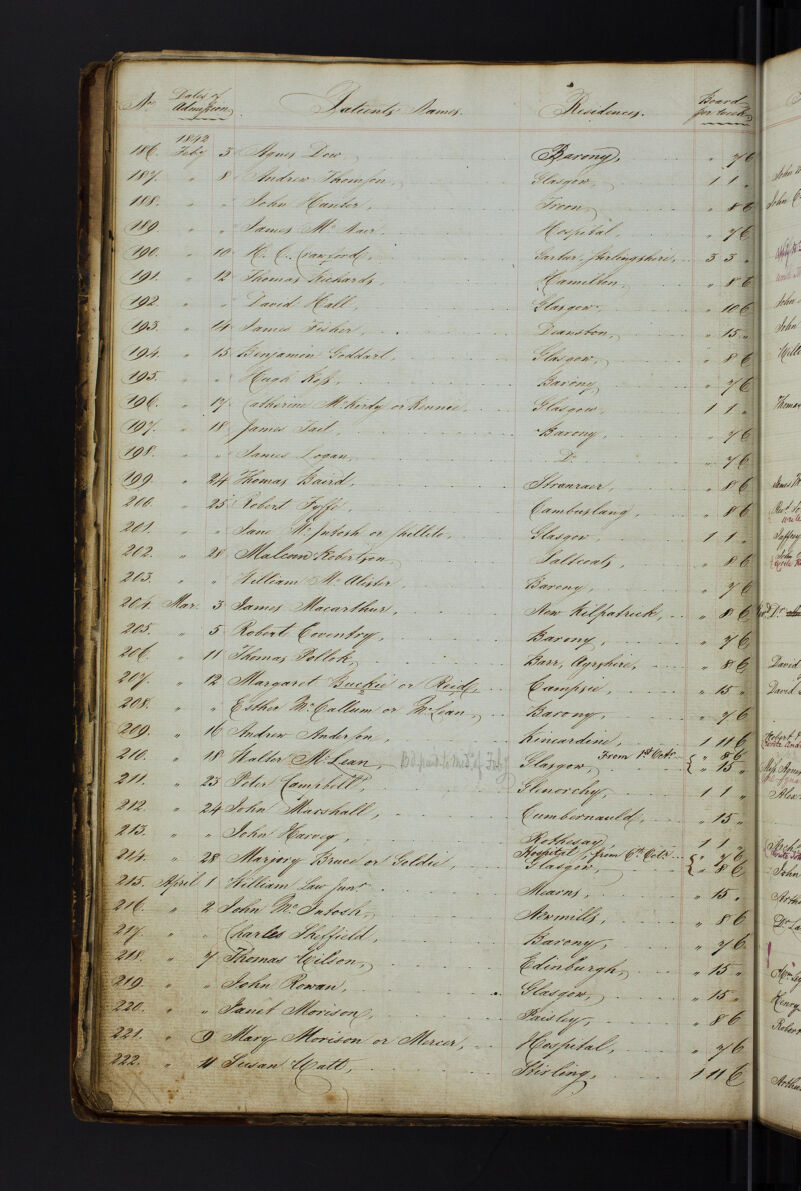 No. Dates of Admission Patients Names. Residences. Board per Week
1842
186. Feby 5 Agnes Dow, Barony, " 7 6
187. " 8 Andrew Thomson, Glasgow, 1 1 "
188. " " John Hunter, Troon, " 8 6
189. " " James McNair, Hospital, " 7 6
190. " 10 H. C. Crawford, Stirlingshire, 3 3 "
191. " 12 Thomas Richards, Hamilton, " 8 6
192. " " David Hall, Glasgow, " 10 6
193. " 14 James Fisher, Deanston, " 15 "
194. " 15 Benjamin Goddart, Glasgow, " 8 6
195. " " Hugh Ross, Barony, " 7 6
196. " 17 Catherine McKirdy or Rennie, Glasgow, 1 1 "
197. " 18 James Tait, Barony, " 7 6
198. " " James Logan, Do " 7 6
199. " 24 Thomas Baird, Stranraer, " 8 6
200. " 25 Robert Fyffe, Cambuslang, " 8 6
201. " " Jane McIntosh or Shillito, Glasgow, 1 1 "
202. " 28 Malcom Robertson, Saltcoats, " 8 6
203. " " William McAlister, Barony, " 7 6
204. Mar. 3 James Macarthur, New Kilpatrick, " 8 6
205. " 5 Robert Coventry, Barony, " 7 6
206. " 11 Thomas Pollok, Barr, Ayrshire, " 8 6
207. " 12 Margaret Buckie or Reid, Campsie, " 15 "
208. " " Esther McCallum or McLean, Barony, " 7 6
209. " 16 Andrew Anderson Kincardine, 1 11 6
210. " 18 Walter McLean, Glasgow, From 1st Octr { " 8 6 " 15 "
211. " 23 Peter Campbell, Glenorchy, 1 1 "
212. " 24 John Marshall, Cumbernauld, " 15 "
213. " " John Harvey, Rothesay 1 1 "
214. " 28 Marjory Bruce or Goldie, Hospital, from 6th Octr { " 7 6
Glasgow, " 8 6
215. April 1 William Law Junr Mearns, " 15 "
216. " 2 John McIntosh, Newmills, " 8 6
217. " " Charles Sheffield, Barony, " 7 6
218. " 7 Thomas Wilson, Edinburgh, " 15 "
219. " " John Rowan, Glasgow, " 15 "
220. " " Janet Morison, Paisley, " 8 6
221. " 9 Mary Morison or Mercer, Hospital, " 7 6
222. " 11 Susan Watt, Stirling, 1 11 6